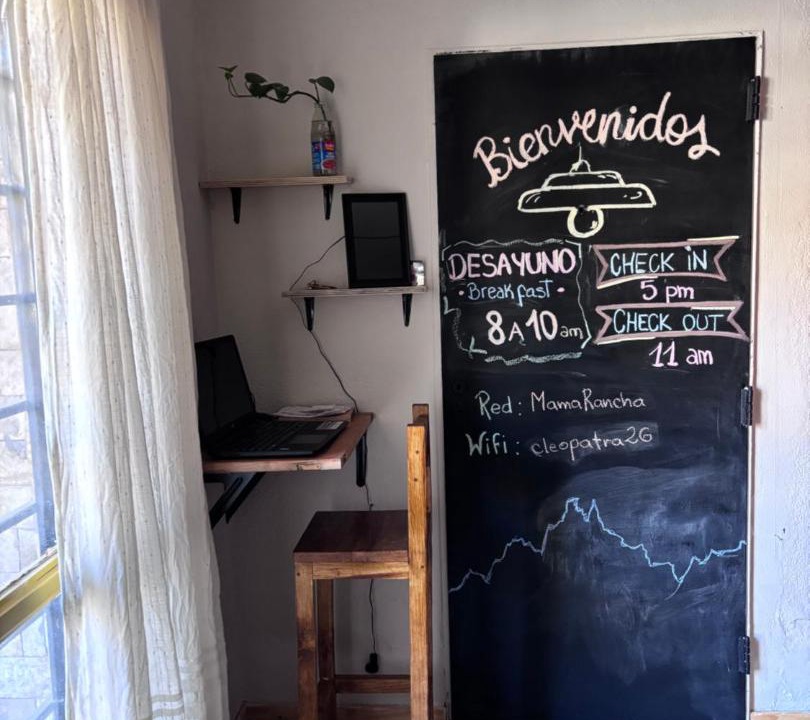 Bienvenidos
DESAYUNO
• Breakfast •
8 A 10 am
CHECK IN
5 pm
CHECK OUT
11 am
Red: MamaRancha
Wifi: cleopatra26